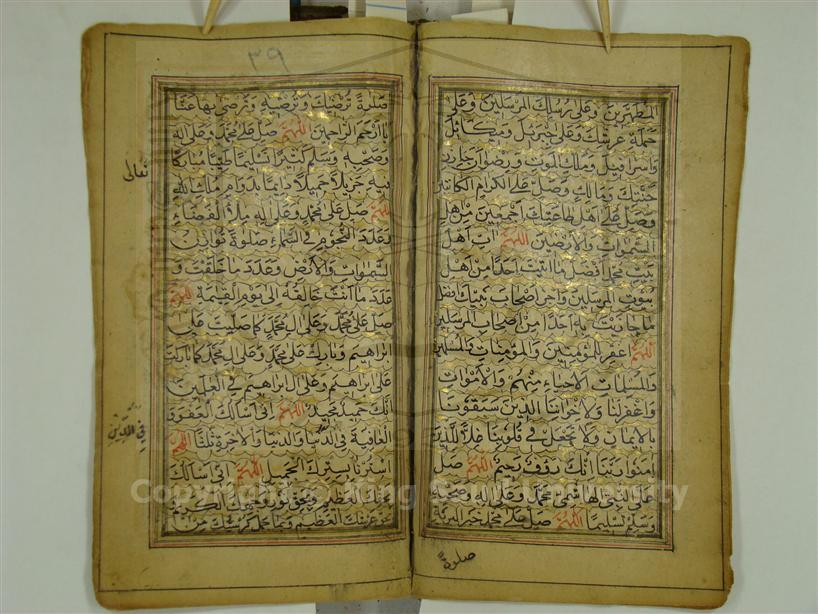 المطهرين وعلى رسلك المرسلين وعلى
حملة عرشك وعلى جبريل وميكائل
واسرافيل وملك الموت ورضوان خازن
جنتك ومالك وصل على الكرام الكاتبين
وصل على اهل طاعتك اجمعين من اهل
السموات والارضين اللهم ات اهل
بيت محمد افضل ما اتيت احدا من اهل
بيوت المرسلين واجز اصحاب نبيك افضل
ما جازيت به احدا من اصحاب المرسلين
اللهم اغفر للمؤمنين والمؤمنات والمسلمين
والمسلمات الاحياء منهم والاموات
واغفر لنا ولاخواننا الذين سبقونا
بالايمان ولا تجعل في قلوبنا غلا للذين
امنوا ربنا انك رؤف رحيم اللهم صل
على النبي الهاشمي محمد وعلى اله وصحبه
وسلم تسليما اللهم صل على محمد خير البرية
صلوة
٣٩
صلوة ترضيك وترضيه وترضى بها عنا
يا ارحم الراحمين اللهم صل على محمد وعلى اله
وصحبه وسلم كثيرا تسليما طيبا مباركا
فيه جزيلا جميلا دائما بدوام ملك الله
تعالى
اللهم صل على محمد وعلى اله ملأ الفضاء
وعدد النجوم في السماء صلوة توازن
السموات والارض وعدد ما خلقت و
عدد ما انت خالقه الى يوم القيمة اللهم
صل على محمد وعلى ال محمد كما صليت على
ابراهيم وبارك على محمد وعلى ال محمد كما باركت
على ابراهيم وعلى ال ابراهيم في العلمين
انك حميد مجيد اللهم اني اسالك العفو و
العافية في الدنيا والاخرة ثلثا اللهم
في الدين
استرنا بسترك الجميل اللهم اني اسالك
بحقك العظيم وبحق نور وجهك الكريم
وبحق عرشك العظيم وبما حمل كرسيك من
Copyright © King Saud University